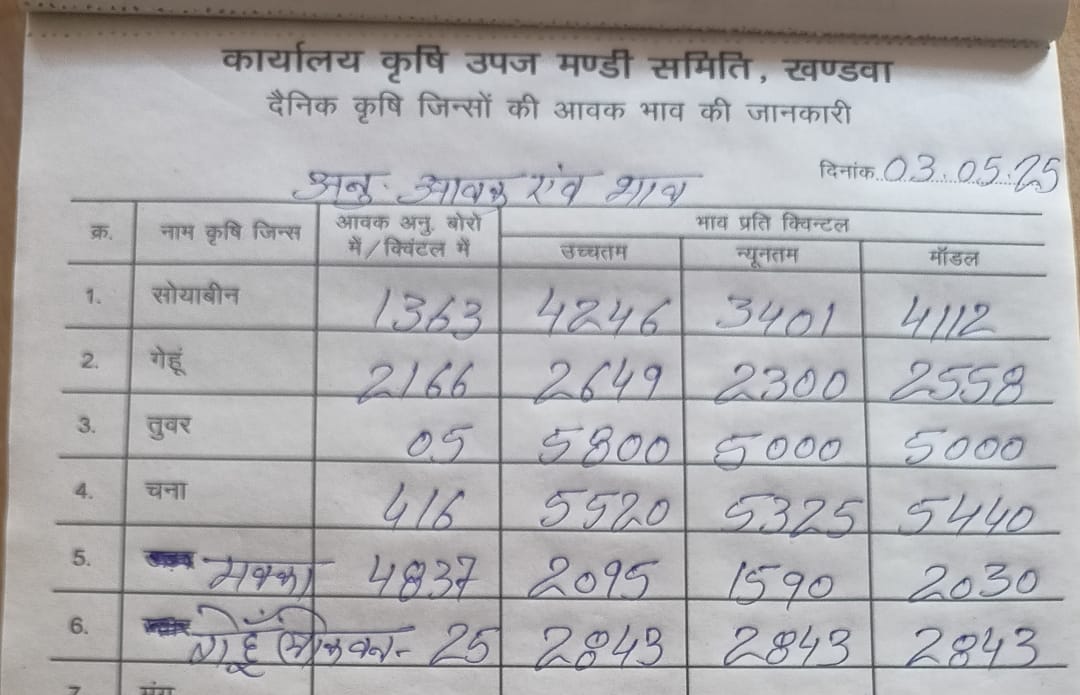 कार्यालय कृषि उपज मण्डी समिति, खण्डवा
दैनिक कृषि जिन्सों की आवक भाव की जानकारी
दिनांक 03.05.25
अनु. आवक एंव भाव
क्र. नाम कृषि जिन्स आवक अनु. बोरो में/क्विंटल में भाव प्रति क्विन्टल
उच्चतम न्यूनतम मॉडल
1. सोयाबीन 1363 4246 3401 4112
2. गेहूं 2166 2649 2300 2558
3. तुवर 05 5800 5000 5000
4. चना 416 5520 5325 5440
5. मक्का 4837 2095 1590 2030
6. गेहूँ 25 2843 2843 2843
7. मूंग